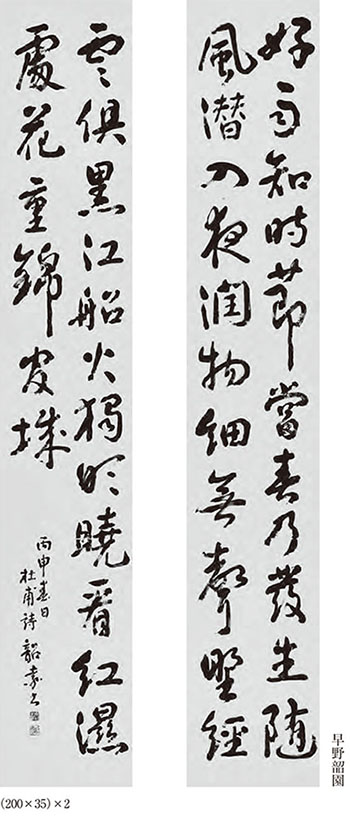 好雨知時節當春乃發生随
風潜入夜潤物細無聲野徑
雲俱黒江船火獨明曉看紅濕
處花重錦官城
丙申春日
杜甫詩 韶園書
早野韶園
(200×35)×2